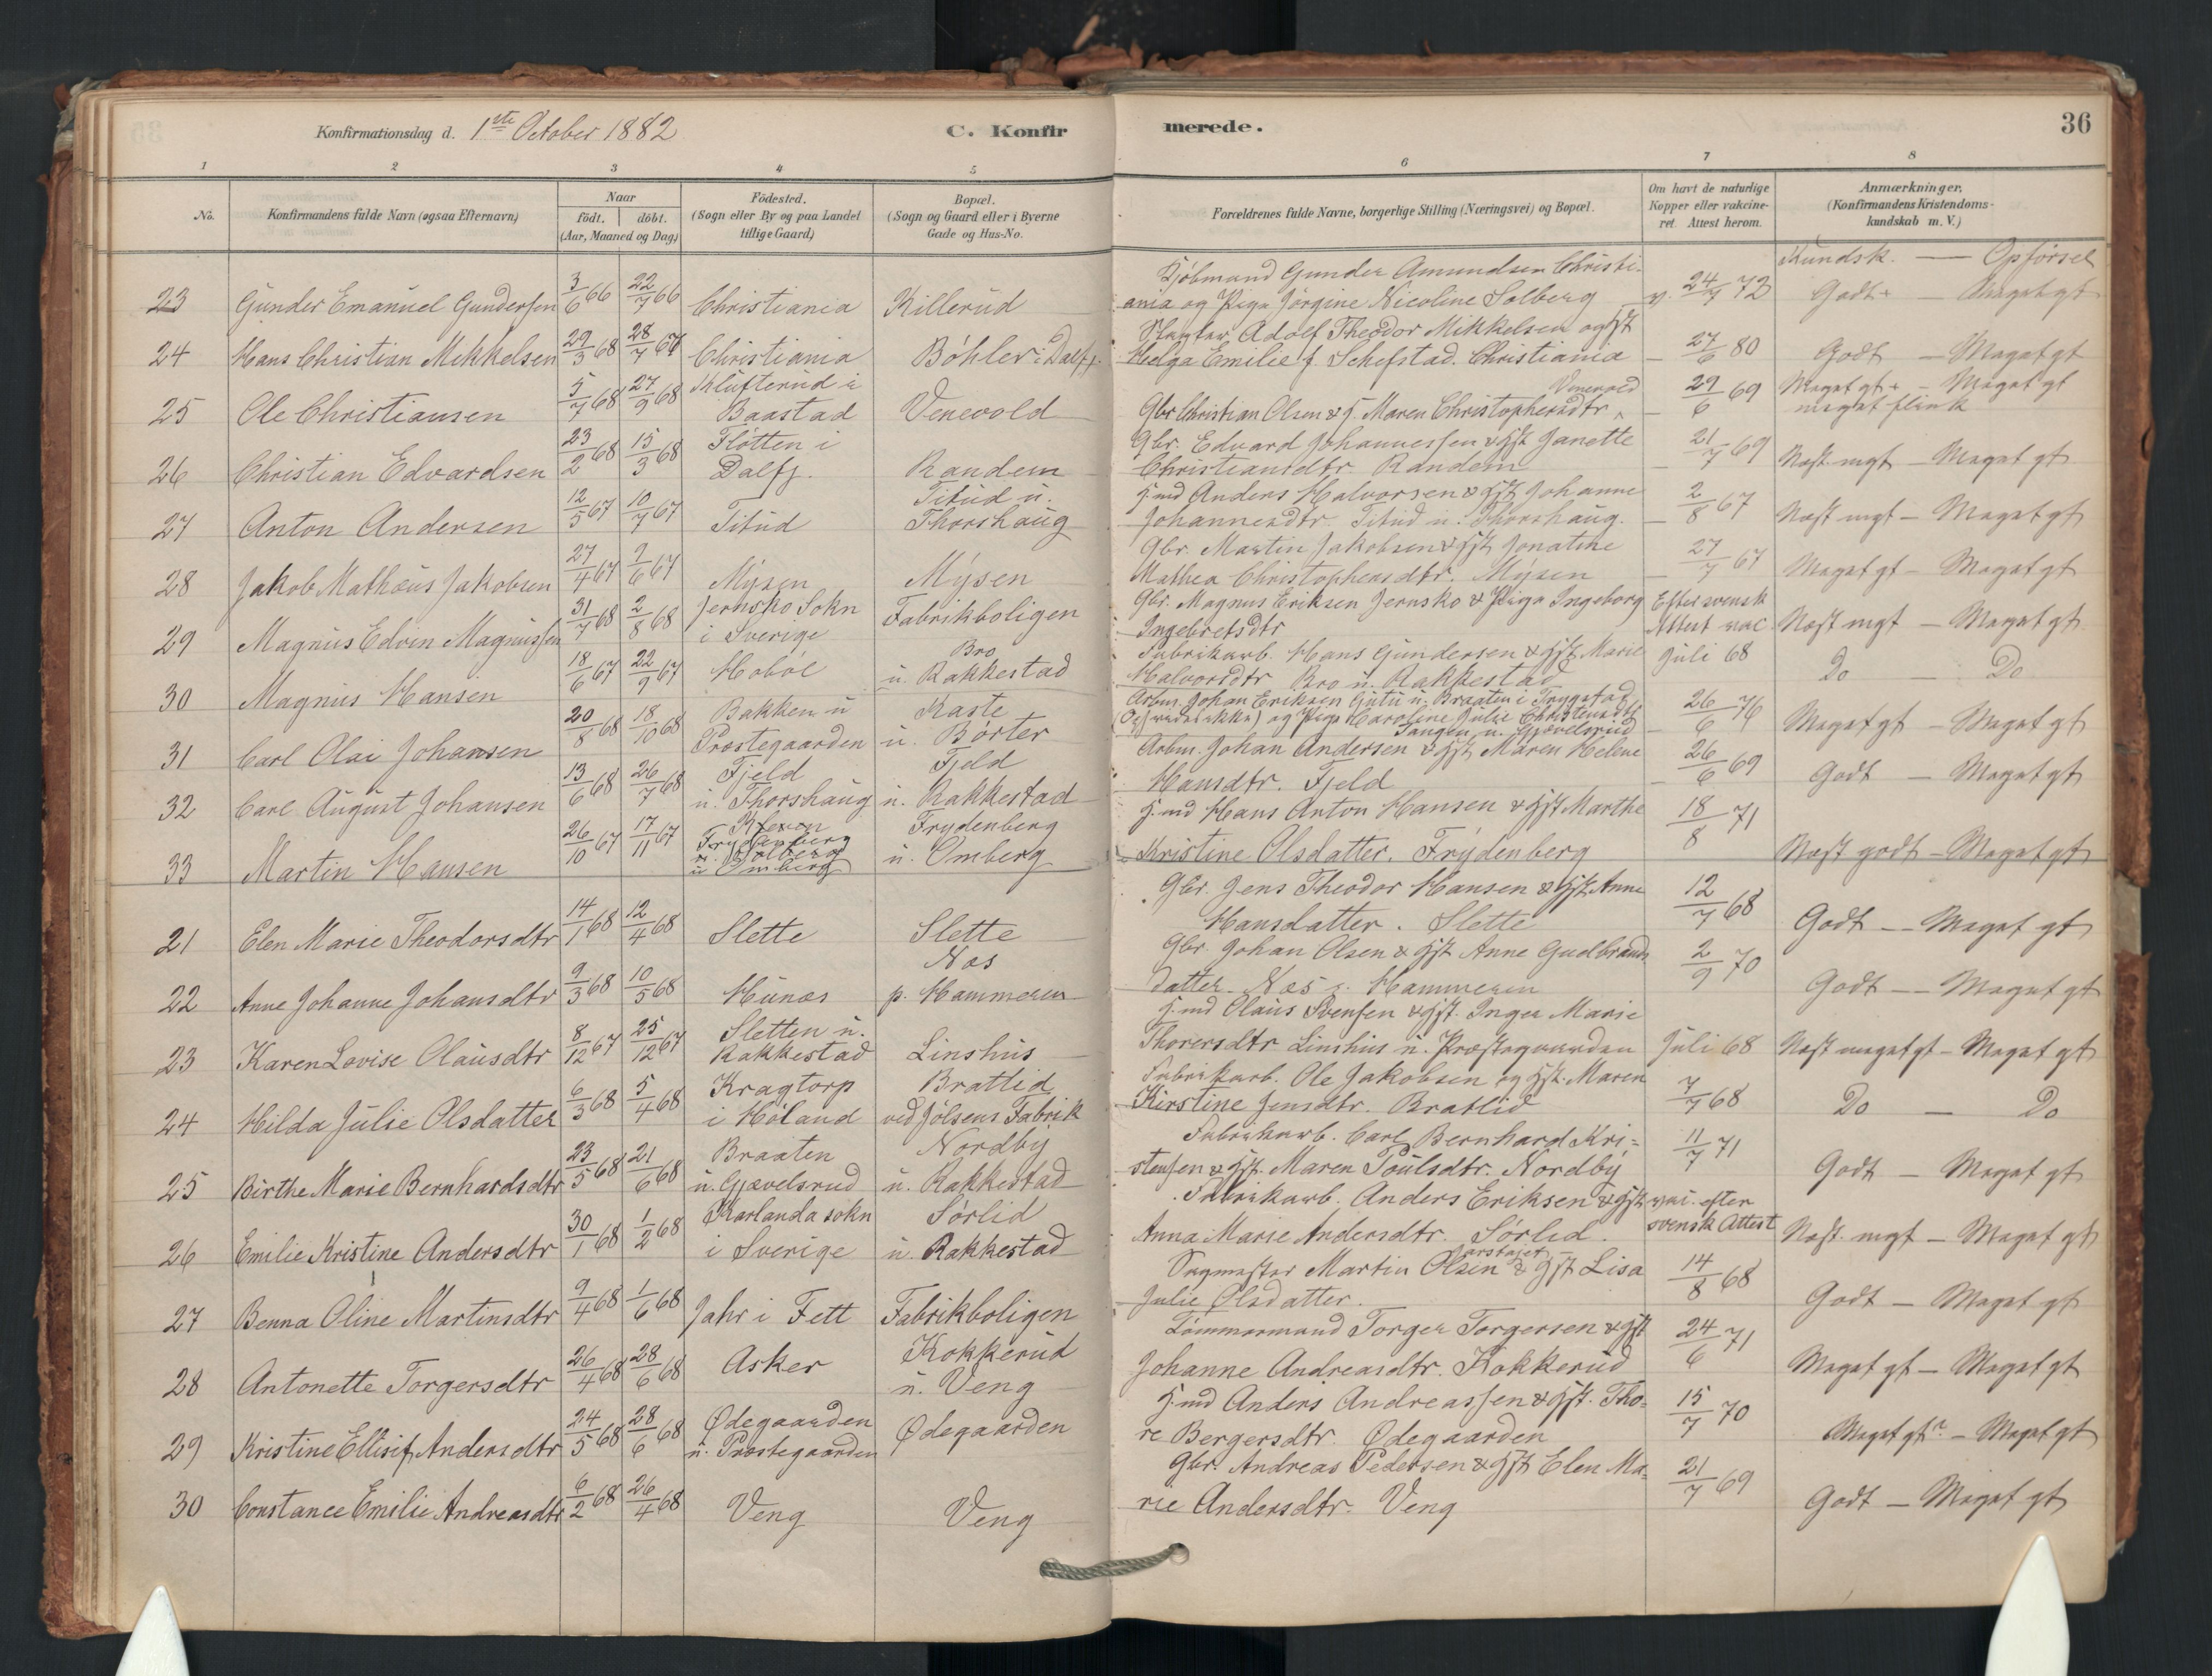 Konfirmationsdag d. 1ste October 1882 C. Konfirmerede. 36
1 2 3 4 5 6 7 8
No. Konfirmandens fulde Navn (ogsaa Efternavn) Naar født. døbt. (Aar, Maaned og Dag) Fødested. (Sogn eller By og paa Landet tillige Gaard) Bopæl. (Sogn og Gaard eller i Byerne Gade og Hus-No. Forældrenes fulde Navne, borgerlige Stilling (Næringsvei) og Bopæl. Om havt de naturlige Kopper eller vakcineret. Attest herom. Anmærkninger. (Konfirmandens Kristendomskundskab m. V.)
Kundsk. — Opførsel
23 Gunder Emanuel Gundersen 3/6 66 22/7 66 Christiania Killerud Kjøbmand Gunder Amundsen Christiania og Pige Jörgine Nicoline Solberg v. 24/7 72 Godt+ Meget gt
24 Hans Christian Mikkelsen 29/3 68 28/7 67 Christiania Bøhler i Dalfj. Slagter Adolf Theodor Mikkelsen og Hst Helga Emilie f. Schefstad. Christiania — 27/6 80 Godt — Meget gt
25 Ole Christiansen 5/7 68 27/9 68 Klufterud i Baastad Venevold Gbr Christian Olsen & H. Maren Christophersdtr. Venevold — 29/6 69 Meget gt+ — Meget gt meget flink
26 Christian Edvardsen 23/2 68 15/3 68 Fløtten i Dalfj. Randem Gbr. Edvard Johannessen & Hst Janette Christiansdtr Randem — 21/7 69 Næst mgt — Meget gt
27 Anton Andersen 12/5 67 10/7 67 Titud Titud u. Thorshaug H.md Anders Halvorsen & Hst Johanne Johannesdtr. Titud u. Thorshaug. — 2/8 67 Næst mgt — Meget gt
28 Jakob Mathæus Jakobsen 27/4 67 9/6 67 Mysen Mysen Gbr. Martin Jakobsen & Hst Jonatine Mathea Christophersdtr. Mysen — 27/7 67 Meget gt — Meget gt
29 Magnus Edvin Magnussen 31/7 68 2/8 68 Jernsko Sokn i Sverige Fabrikboligen Gbr. Magnus Eriksen Jernsko & Pige Ingeborg Ingebretsdtr Efter svensk Attest vac. Næst mgt — Meget gt
30 Magnus Hansen 18/6 67 22/9 67 Hobøl Bro u. Rakkestad Fabrikarb. Hans Gundersen & Hst Marie Halvorsdtr Bro u. Rakkestad Juli 68 Do — Do
31 Carl Olai Johansen 20/8 68 18/10 68 Bakken u Præstegaarden Kaste u. Børter Arbm. Johan Eriksen Gutu u. Braaten i Trygstad og Pige Karoline Julie Christensdtr Tangen u. Gjævelsrud — 26/6 76 Meget gt — Meget gt
32 Carl August Johansen 13/6 68 26/7 68 Fjeld u. Thorshaug Fjeld u. Rakkestad Arbm. Johan Andersen & Hst Maren Helene Hansdtr. Fjeld — 26/6 69 Godt — Meget gt
33 Martin Hansen 26/10 67 17/11 67 Frydenberg u Omberg Frydenberg u. Omberg H.md Hans Anton Hansen & Hst Marthe Kristine Olsdatter. Frydenberg 18/8 71 Næst godt — Meget gt
21 Elen Marie Theodorsdtr 14/1 68 12/4 68 Slette Slette Gbr. Jens Theodor Hansen & Hst Anne Hansdatter. Slette 12/7 68 Godt — Meget gt
22 Anne Johanne Johansdtr 9/3 68 10/5 68 Hunæs Næs p. Hammeren Gbr. Johan Olsen & Hst Anne Gudbrandsdatter. Næs p. Hammeren 2/9 70 Godt — Meget gt
23 Karen Lovise Olausdtr 8/12 67 25/12 67 Sletten u. Rakkestad Linshus H.md Olaus Svensen & Hst. Inger Marie Thorersdtr Linshus u. Præstegaarden Juli 68 Næst meget gt — Meget gt
24 Hilda Julie Olsdatter 6/3 68 5/4 68 Kragtorp i Høland Bratlid ved Jølsens Fabrik Fabrikarb. Ole Jakobsen og Hst. Maren Kirstine Jensdtr. Bratlid 7/7 68 Do — Do
25 Birthe Marie Bernhardsdtr 23/5 68 21/6 68 Braaten u. Gjævelsrud Nordby u. Rakkestad Fabrikarb. Carl Bernhard Kristensen & Hst. Maren Poulsdtr. Nordby 11/7 71 Godt — Meget gt
26 Emilie Kristine Andersdtr 30/1 68 1/2 68 Karlanda sokn i Sverige Sørlid u. Rakkestad Fabrikarb. Anders Eriksen & Hst Anna Marie Andersdtr. Sørlid. vac. efter svensk Attest Næst. mgt — Meget gt
27 Benna Oline Martinsdtr 9/4 68 1/6 68 Jahr i Fett Fabrikboligen Sagmester Martin Olsen & Hst Lisa Julie Olsdatter. 14/8 68 Godt — Meget gt
28 Antonette Torgersdtr 26/4 68 28/6 68 Asker Kokkerud u. Veng Tømmermand Torger Torgersen & Hst Johanne Andreasdtr. Kokkerud 24/6 71 Meget gt — Meget gt
29 Kristine Ellisif Andersdtr 24/5 68 28/6 68 Ødegaarden u. Præstegaarden Ødegaarden H.md Anders Andreassen & Hst. Thore Bergersdtr. Ødegaarden 15/7 70 Meget gt — Meget gt
30 Constance Emilie Andreasdtr 6/2 68 26/4 68 Veng Veng Gbr. Andreas Pedersen & Hst Elen Marie Andersdtr. Veng 21/7 69 Godt — Meget gt